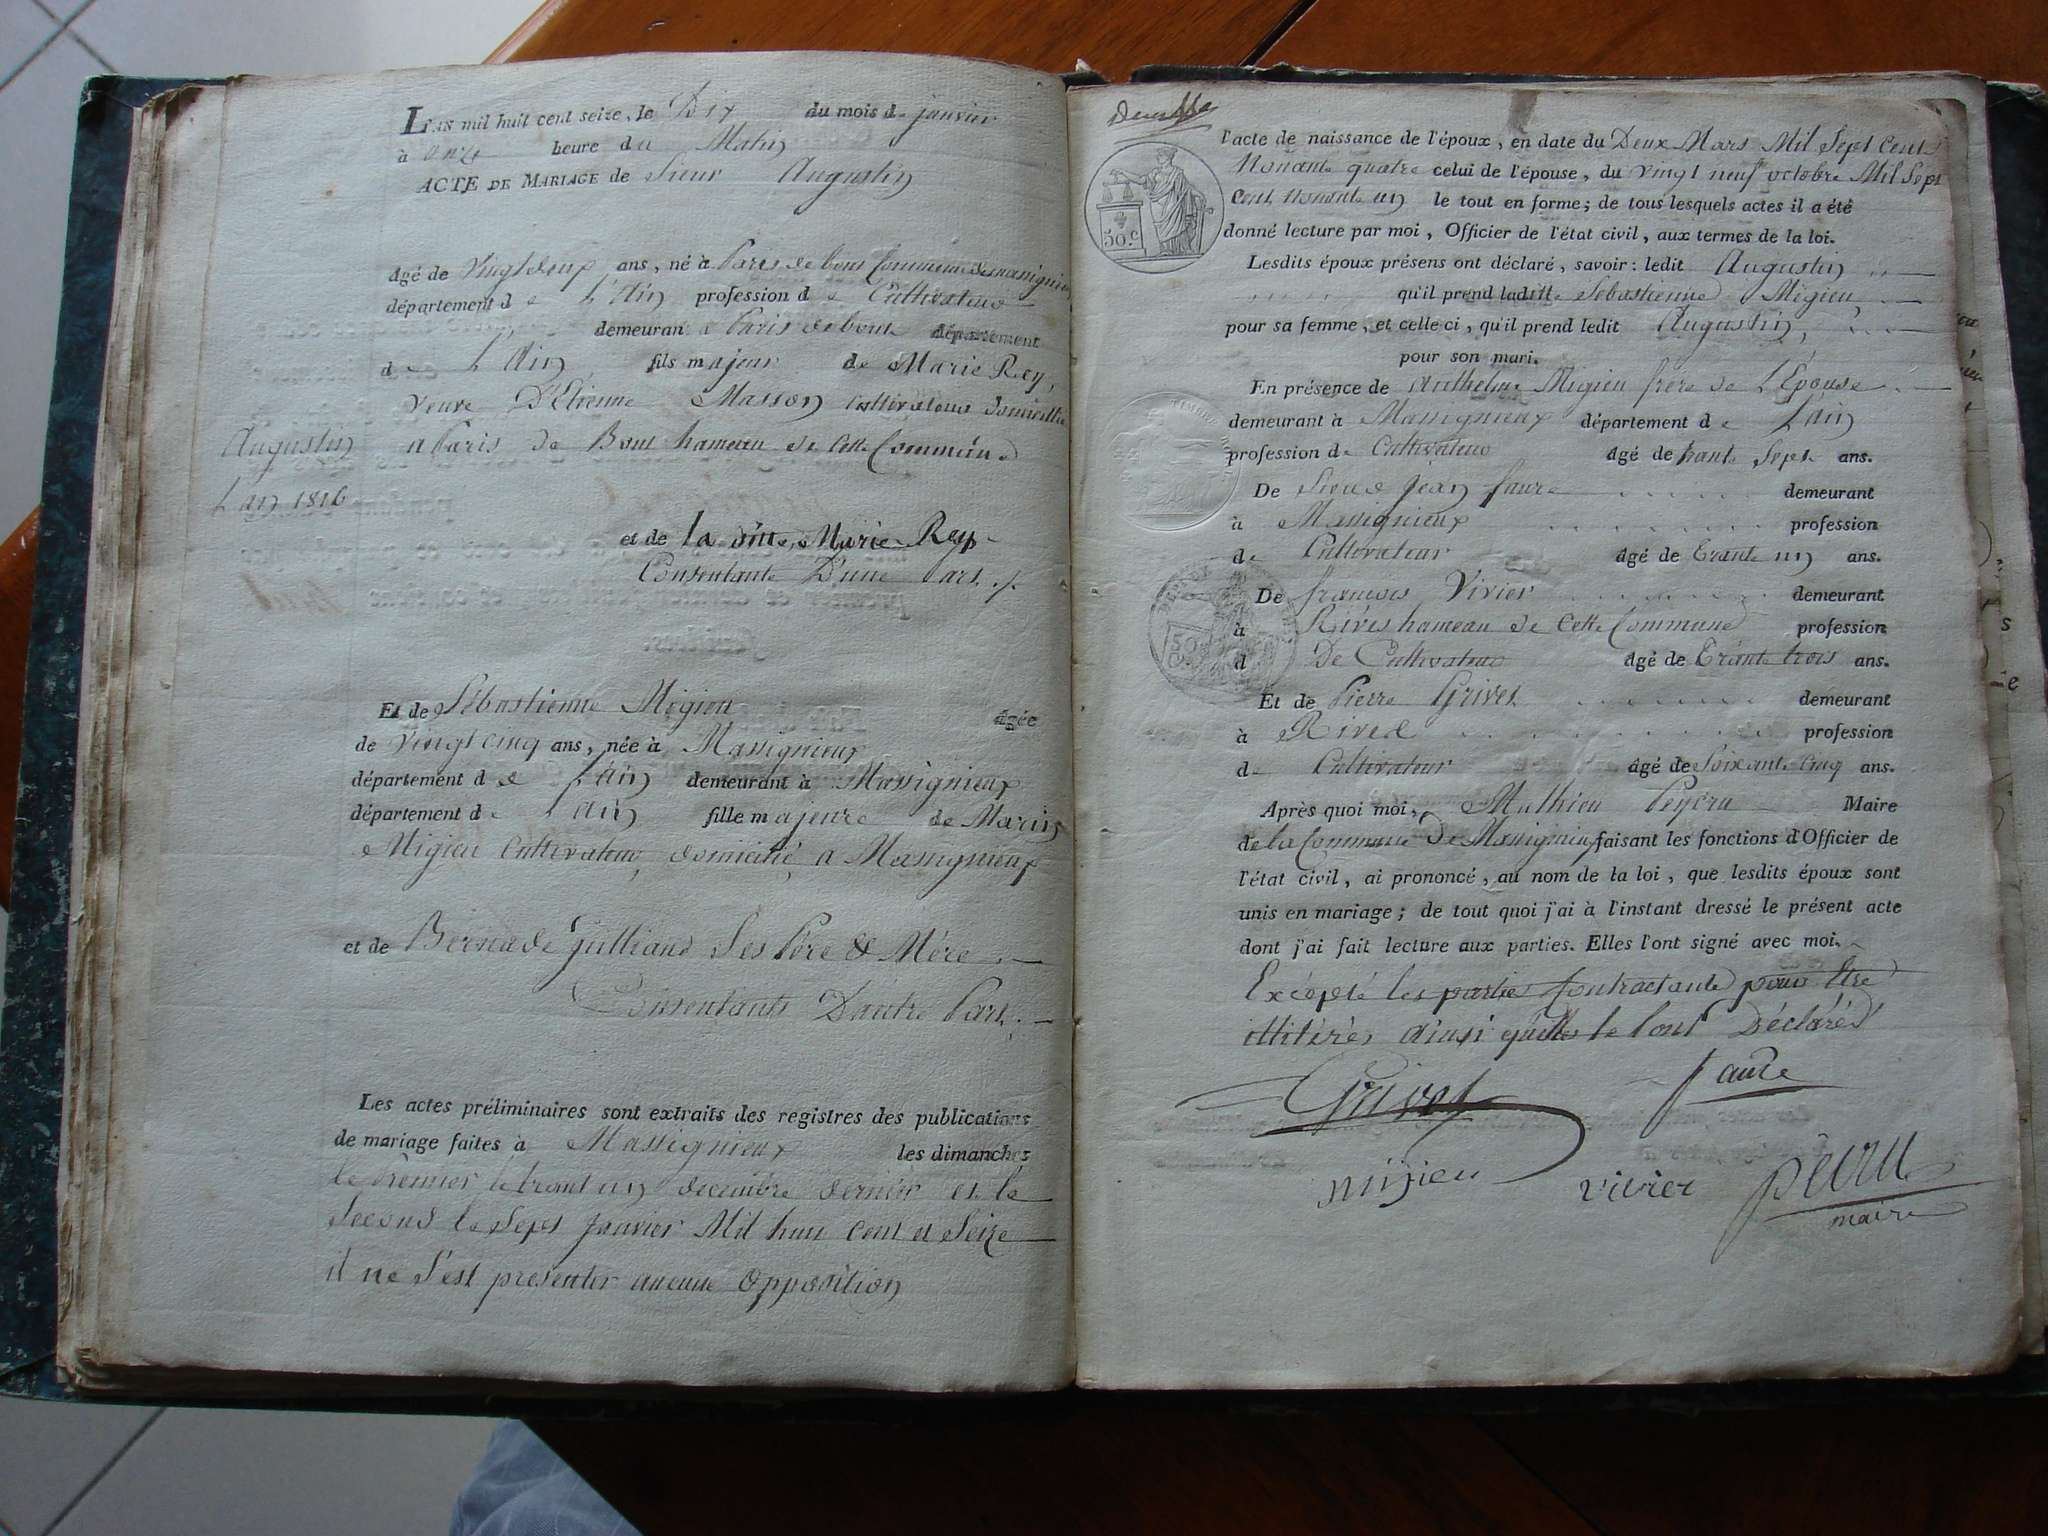 L'AN mil huit cent seize, le Dix du mois de janvier
à onze heure du Matin
ACTE DE MARIAGE de Sieur Augustin
âgé de Vingt deux ans, né à Paris de bout Commune de massignieu
département de L'ain profession de Cultivateur
demeurant a Paris de bout département
de L'ain fils majeur de Marie Rey,
Veuve D'Etienne Masson Cultivateur domicilié
a Paris de Bout hameau de Cette Commune
Augustin
L'an 1816
et de la ditte Marie Rey
Consentante D'une Part
Et de Sébastienne Migieu âgée
de Vingt cinq ans, née à Massignieux
département de L'ain demeurant à Massignieux
département de L'ain fille majeure de Marin
Migieu Cultivateur, domicilié a Massignieux
et de Bernade Julliand Ses Père & Mère
Consentants D'autre Part
Les actes préliminaires sont extraits des registres des publications
de mariage faites à Massignieux les dimanches
le Premier le trent un decembre dernier et le
Second le Sept Janvier Mil huit cent et Seize
il ne S'est presenter aucune Opposition
l'acte de naissance de l'époux, en date du Deux Mars Mil Sept Cent
Nonante quatre celui de l'épouse, du Vingt neuf octobre Mil Sept
Cent Nonante un le tout en forme; de tous lesquels actes il a été
donné lecture par moi, Officier de l'état civil, aux termes de la loi.
50.c
Lesdits époux présens ont déclaré, savoir: ledit Augustin
qu'il prend ladite Sébastienne Migieu
pour sa femme, et celle ci, qu'il prend ledit Augustin,
pour son mari.
En présence de Anthelme Migieu frère de L'Épouse
demeurant à Massignieux département de L'ain
profession de Cultivateur âgé de trante Sept ans.
De Sieur Jean faure demeurant
à Massignieux profession
de Cultivateur âgé de Trante un ans.
De francois Vivier demeurant
à Rives hameau de Cette Commune profession
d De Cultivateur âgé de Trante trois ans.
Et de Pierre Grivet demeurant
à Rives profession
de Cultivateur âgé de Soixante Cinq ans.
Après quoi moi, Mathieu Peycru Maire
de la Commune de Massignieux faisant les fonctions d'Officier de
l'état civil, ai prononcé, au nom de la loi, que lesdits époux sont
unis en mariage; de tout quoi j'ai à l'instant dressé le présent acte
dont j'ai fait lecture aux parties. Elles l'ont signé avec moi.
Excépté les parties Contractante pour Etre
illitérés ainsi quelles le Lont Déclarés
Grivet faure
migieu vivier
maire